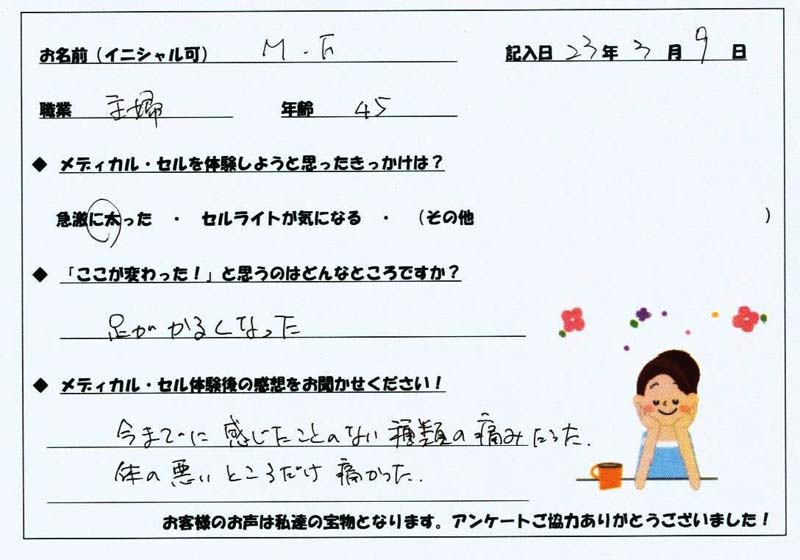 お名前（イニシャル可） M・F 記入日 23年 3月 9日
職業 主婦 年齢 45
◆ メディカル・セルを体験しようと思ったきっかけは？
急激に太った ・ セルライトが気になる ・ （その他 ）
◆ 「ここが変わった！」と思うのはどんなところですか？
足が かるくなった
◆ メディカル・セル体験後の感想をお聞かせください！
今までに 感じたことのない 種類の痛みだった.
体の悪いところだけ 痛かった.
お客様のお声は私達の宝物となります。アンケートご協力ありがとうございました！